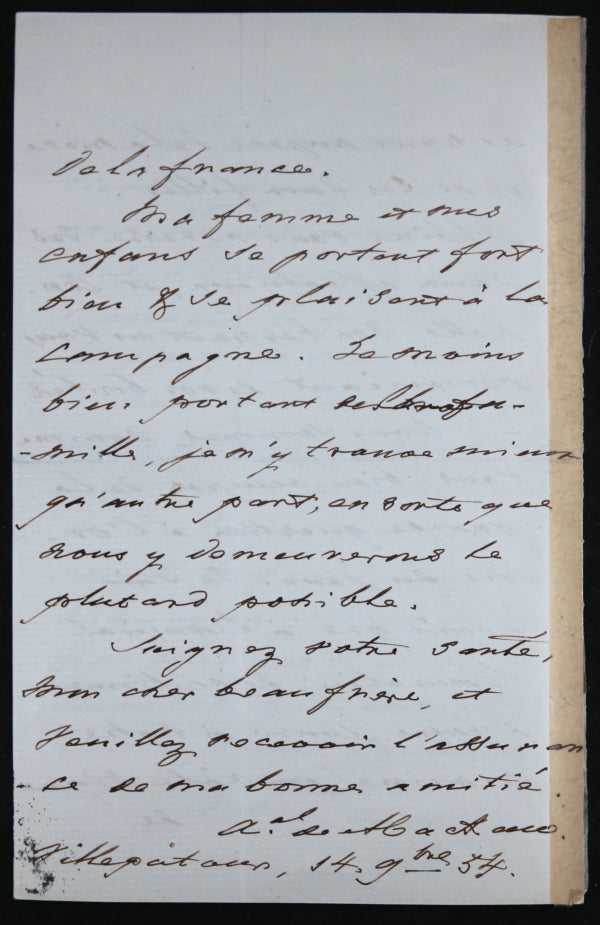 De la france.
Ma femme et mes
enfans se portent fort
bien & se plaisent à la
Campagne. Le moins
bien portant de la fa-
-mille, je m'y trouve mieux
qu'autre part, en sorte que
nous y demeurerons le
plutard possible.
Soignez votre santé,
mon cher beaufrère, et
veuillez recevoir l'assuran
-ce de ma bonne amitié.
A.al de Mackau.
Villepatour, 14 9bre 54.